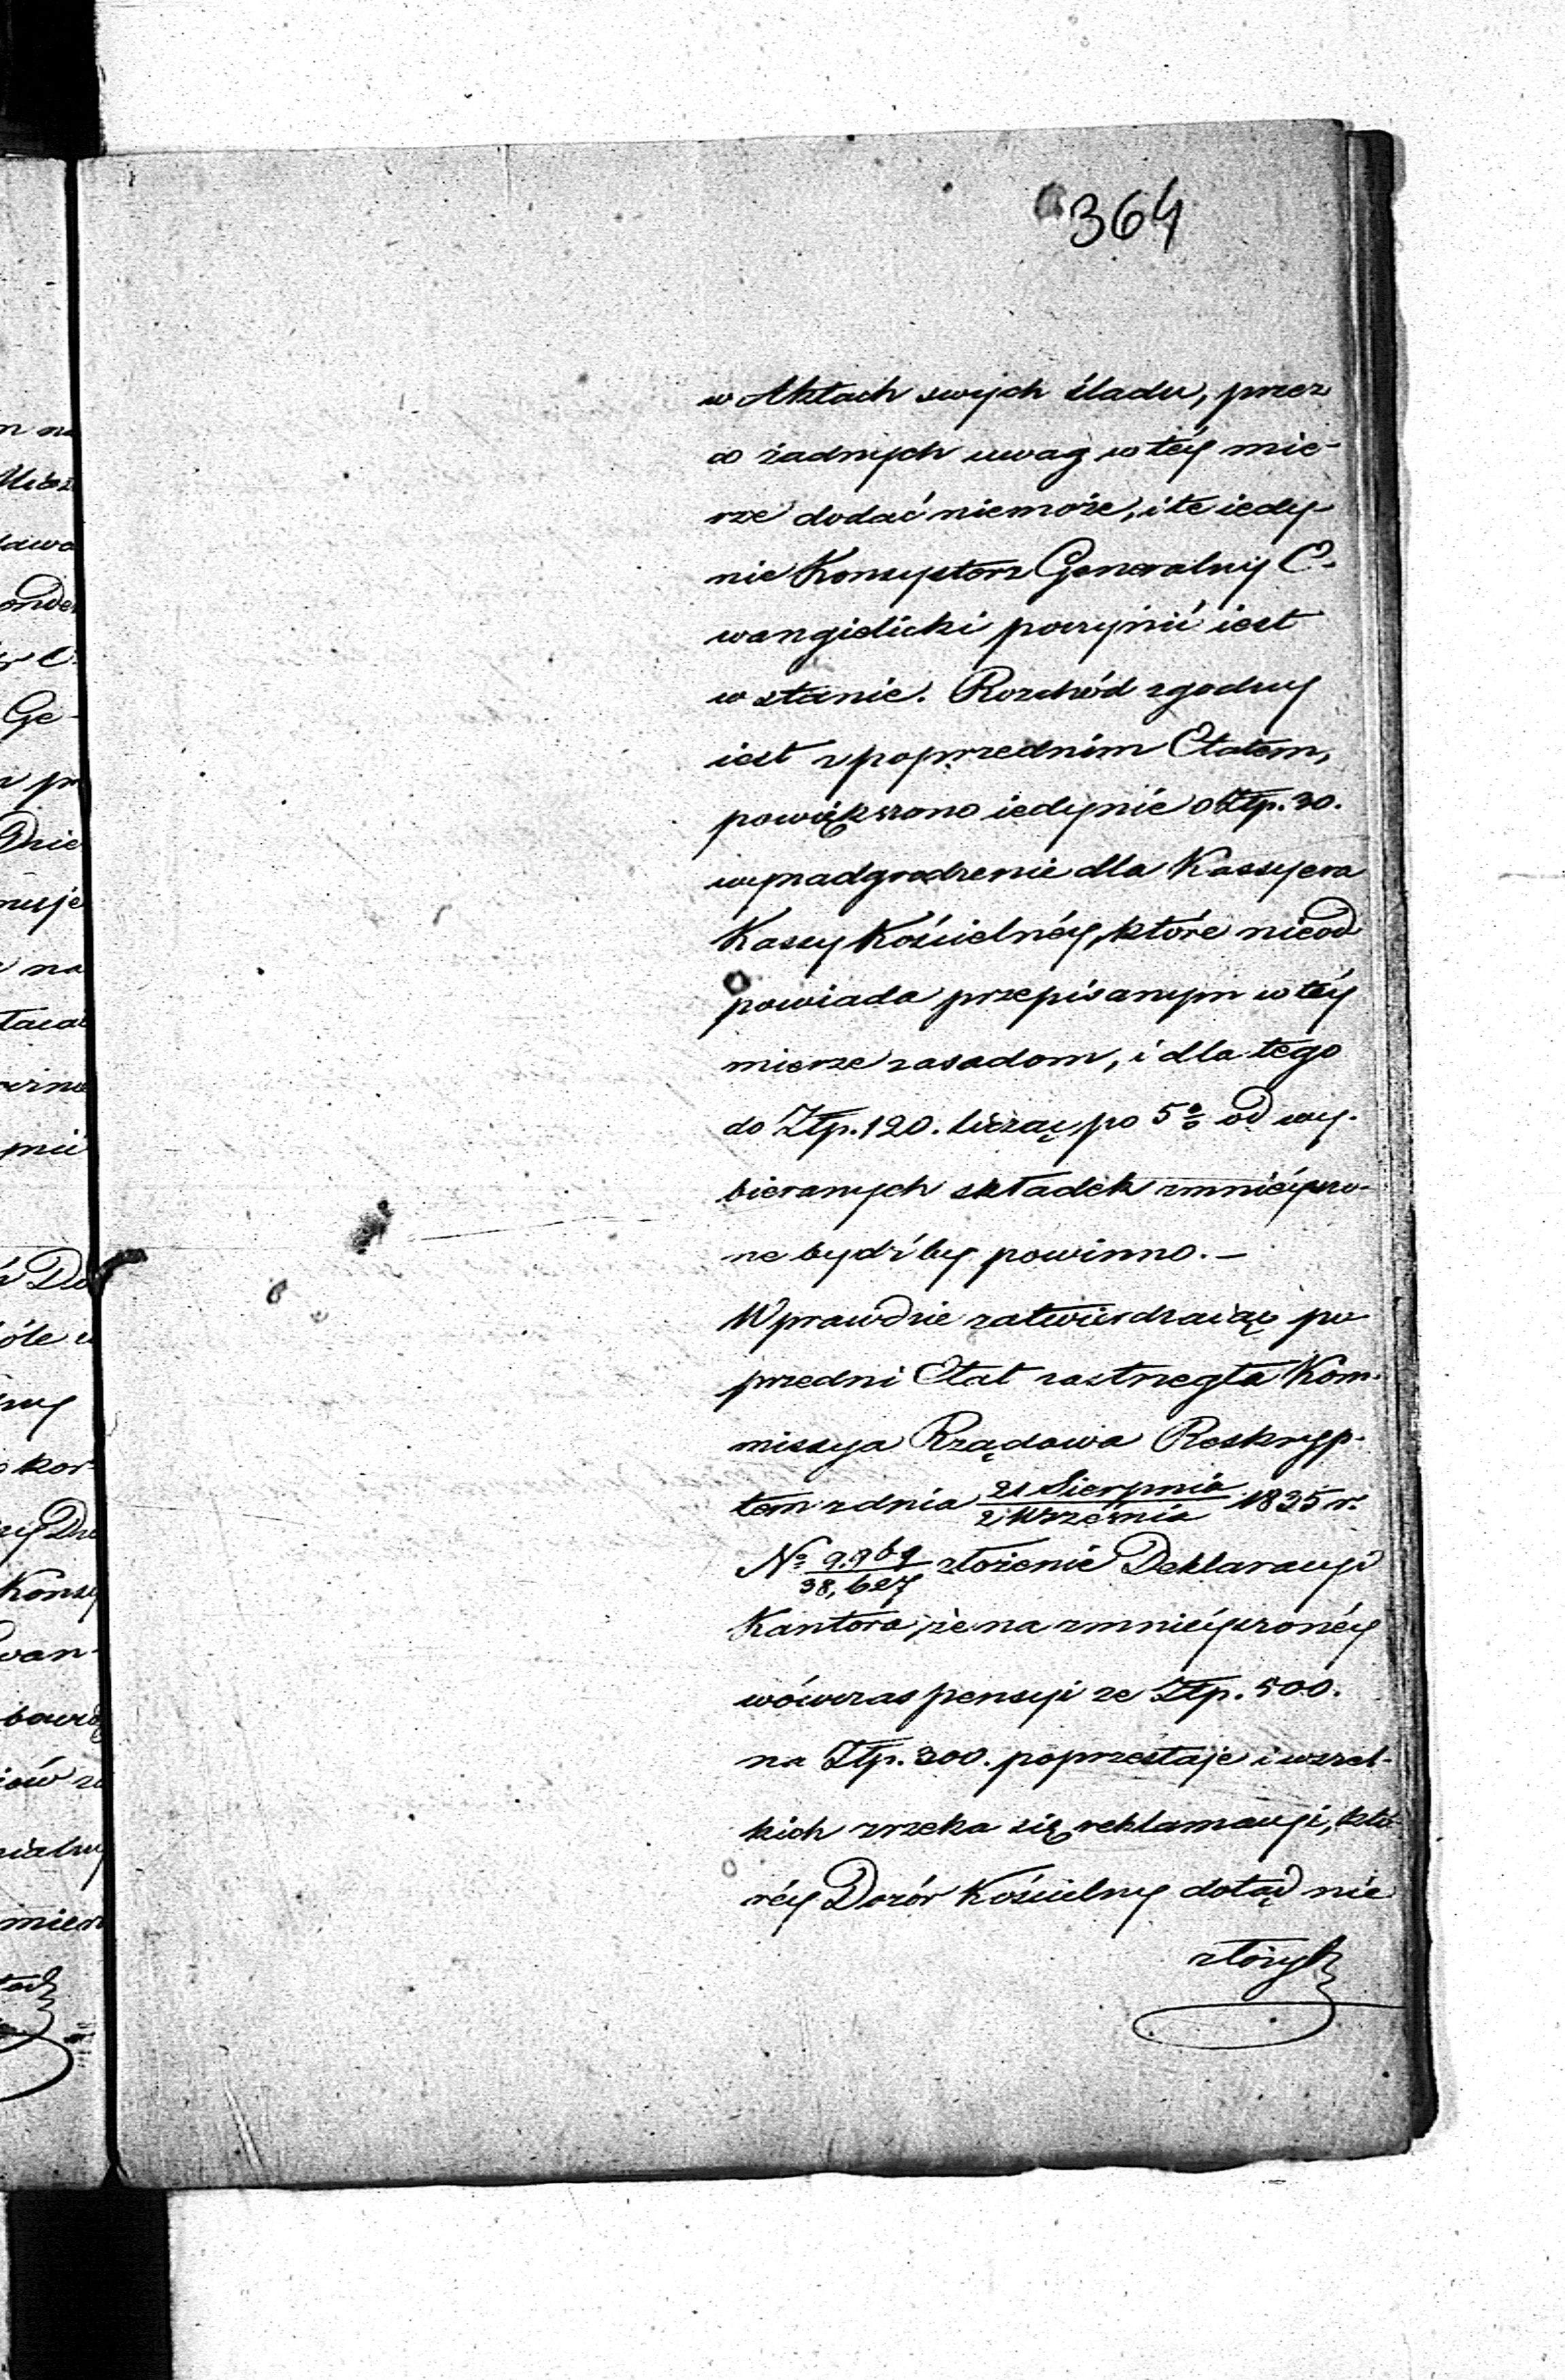 364
w Aktach swych śladu, przez
co żadnych uwag w téy mie-
rze dodać niemoże, i te iedy
nie Konsystorz Generalny E-
wangielicki poczynić iest
w stanie. Rozchód zgodny
iest z poprzednim Etatem,
powiększono iedynie o Złp. 30.
wynadgrodzenie dla Kassyera
Kassy Kościelnéy, które nieod
powiada przepisanym w téy
mierze zasadom, i dla tego
do Złp. 120. licząc po 5% od wy-
bieranych składek zmnieyszo-
ne bydź by powinno. —
Wprawdzie zatwierdzaiąc po
przedni Etat zastrzegła Kom-
missya Rządowa Reskryp-
tem z dnia 21 Sierpnia / 2 Września 1835 r.
Nº 9.969 / 38,627 złożenie Deklaracyi
Kantora, że na zmnieyszonéy
wówczas pensyi ze Złp. 500.
na Złp. 300. poprzestaje i wszel-
kich zrzeka się reklamacyi, któ-
réy Dozór Kościelny dotąd nie
złożył